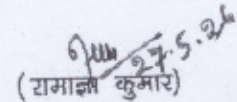 27.5.26
(रामाज्ञा कुमार)